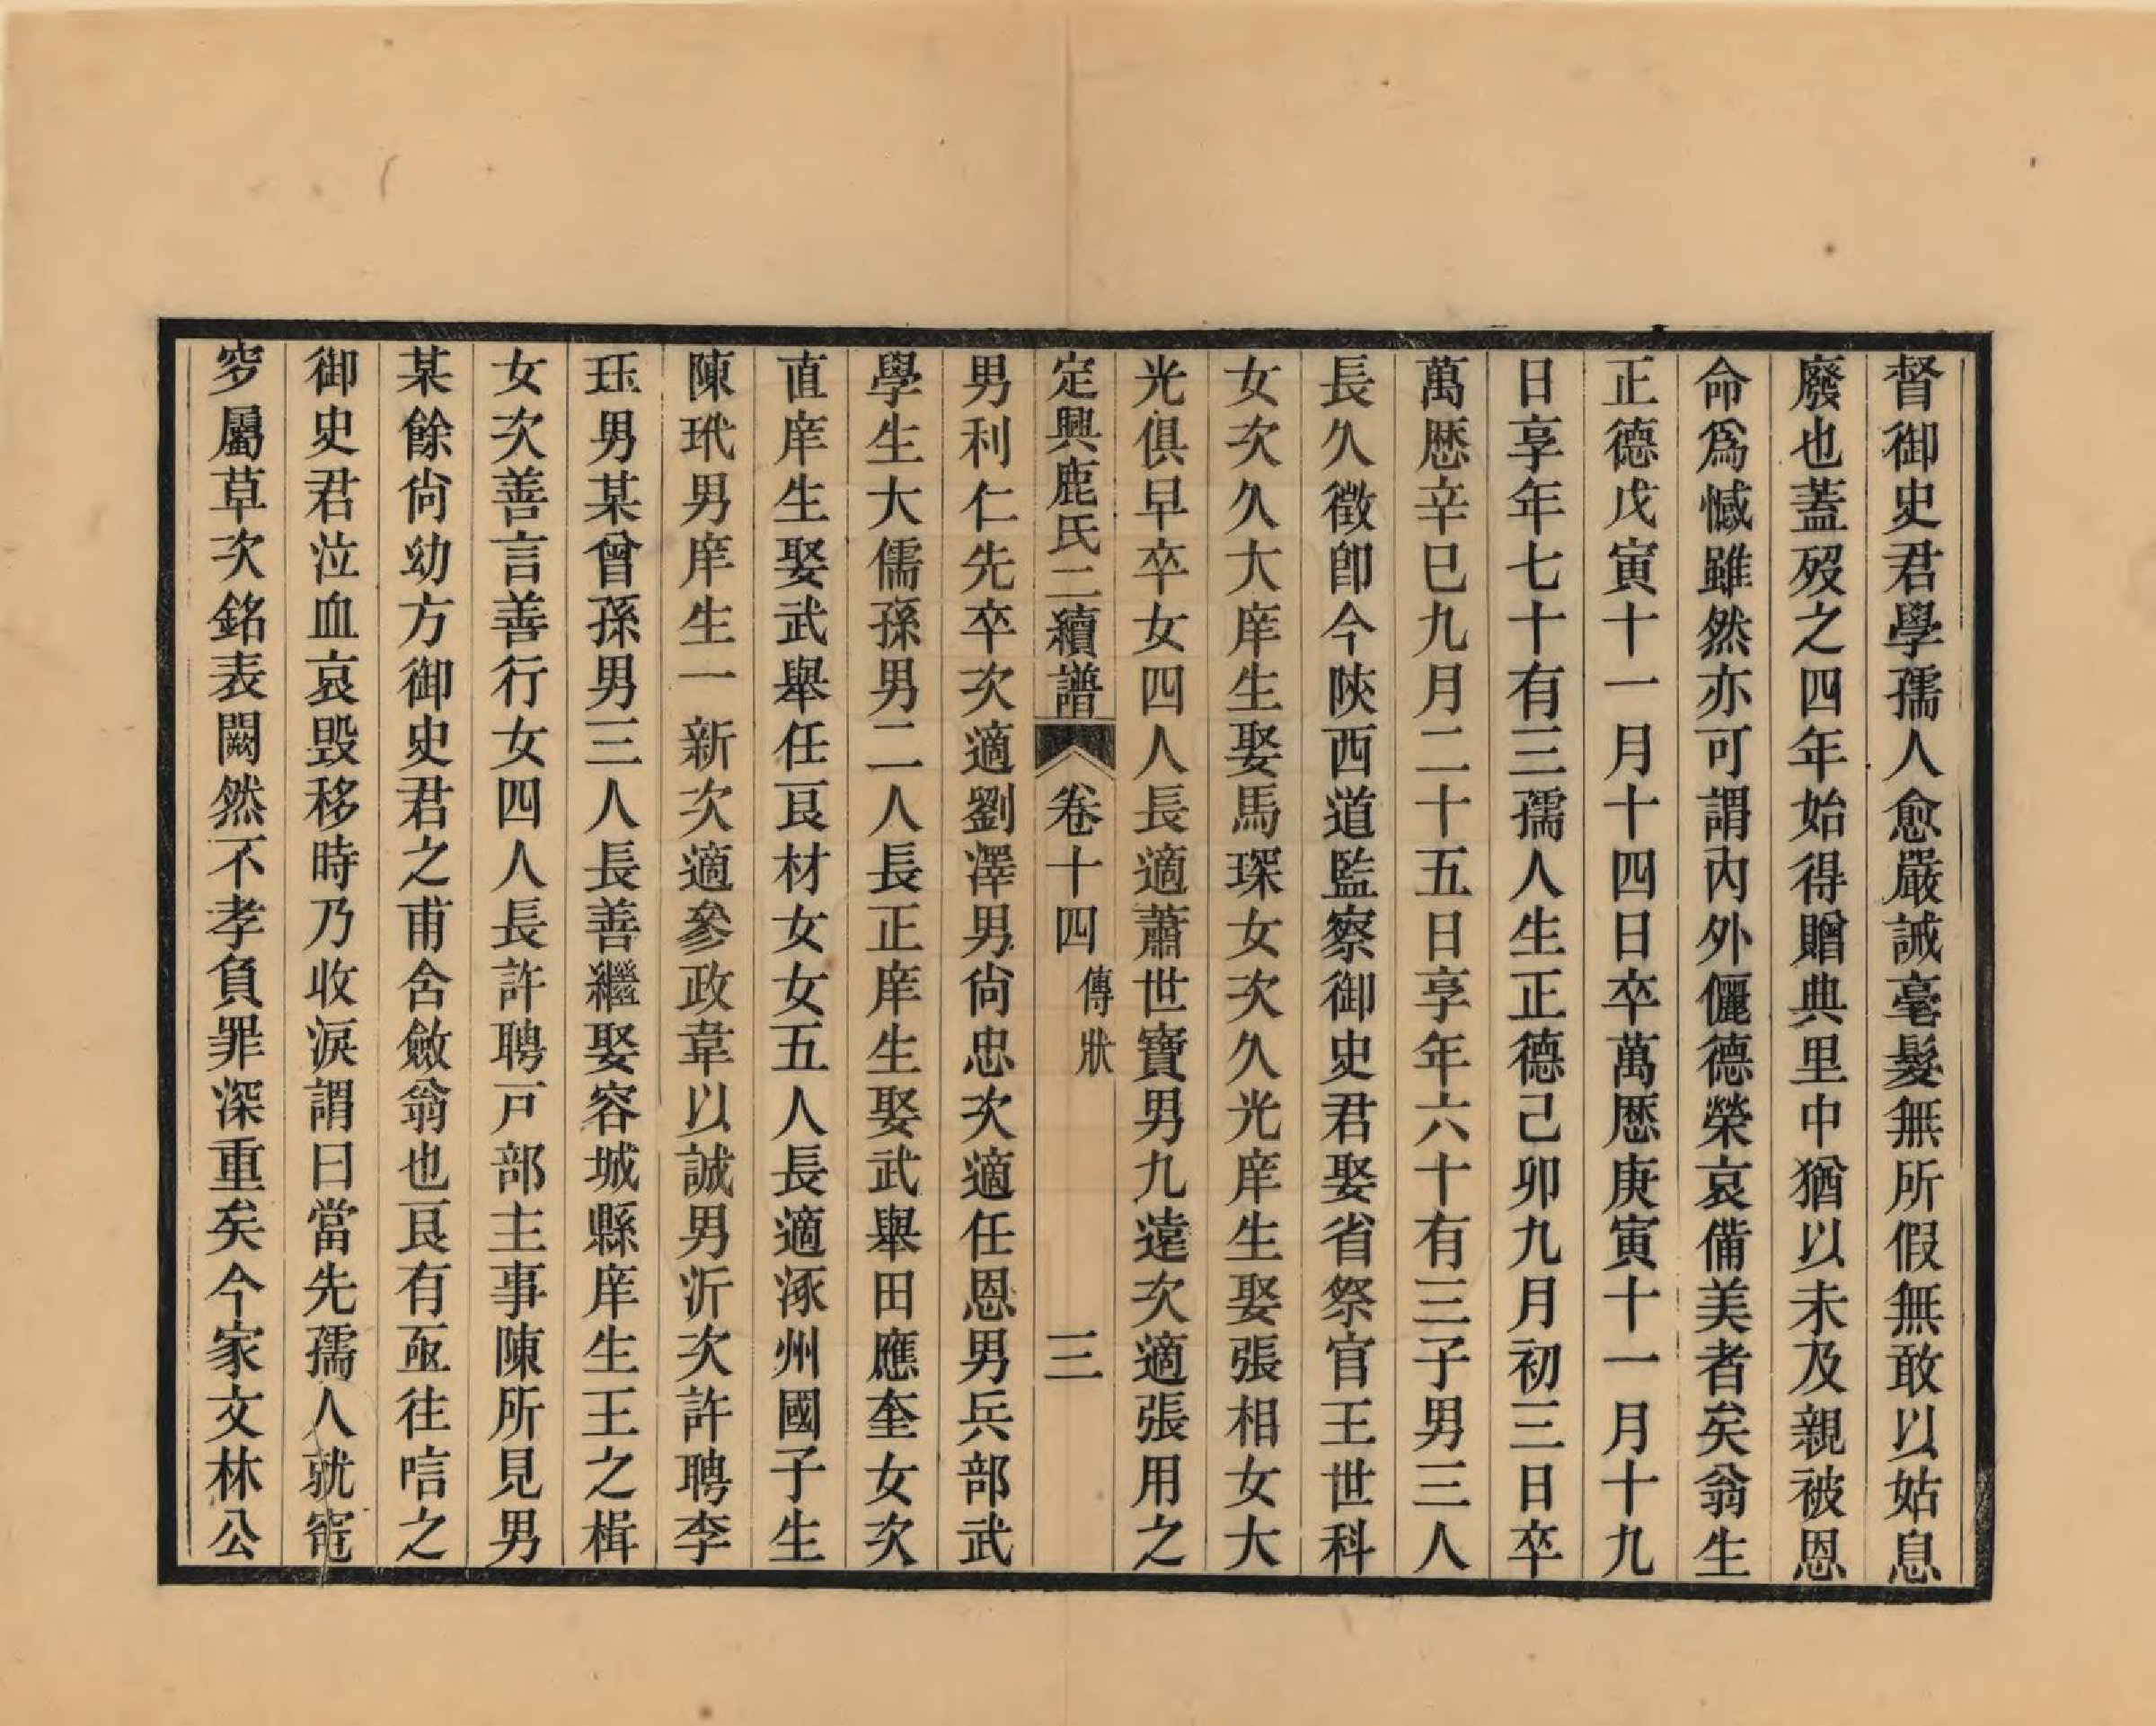 督御史君學孺人愈嚴誡毫髮無所假無敢以姑息
廢也蓋歿之四年始得贈典里中猶以未及親被恩
命爲憾雖然亦可謂內外儷德榮哀備美者矣翁生
正德戊寅十一月十四日卒萬厯庚寅十一月十九
日享年七十有三孺人生正德己卯九月初三日卒
萬厯辛巳九月二十五日享年六十有三子男三人
長久徵卽今陝西道監察御史君娶省祭官王世科
女次久大庠生娶馬琛女次久光庠生娶張相女大
光俱早卒女四人長適蕭世寶男九遠次適張用之
定興鹿氏二續譜 卷十四 傳狀 三
男利仁先卒次適劉澤男尙忠次適任恩男兵部武
學生大儒孫男二人長正庠生娶武舉田應奎女次
直庠生娶武舉任艮材女女五人長適涿州國子生
陳玳男庠生一新次適參政韋以誠男沂次許聘李
珏男某曾孫男三人長善繼娶容城縣庠生王之楫
女次善言善行女四人長許聘戸部主事陳所見男
某餘尙幼方御史君之甫含斂翁也艮有亟往唁之
御史君泣血哀毀移時乃收淚謂曰當先孺人就窀
穸屬草次銘表闕然不孝負罪深重矣今家文林公